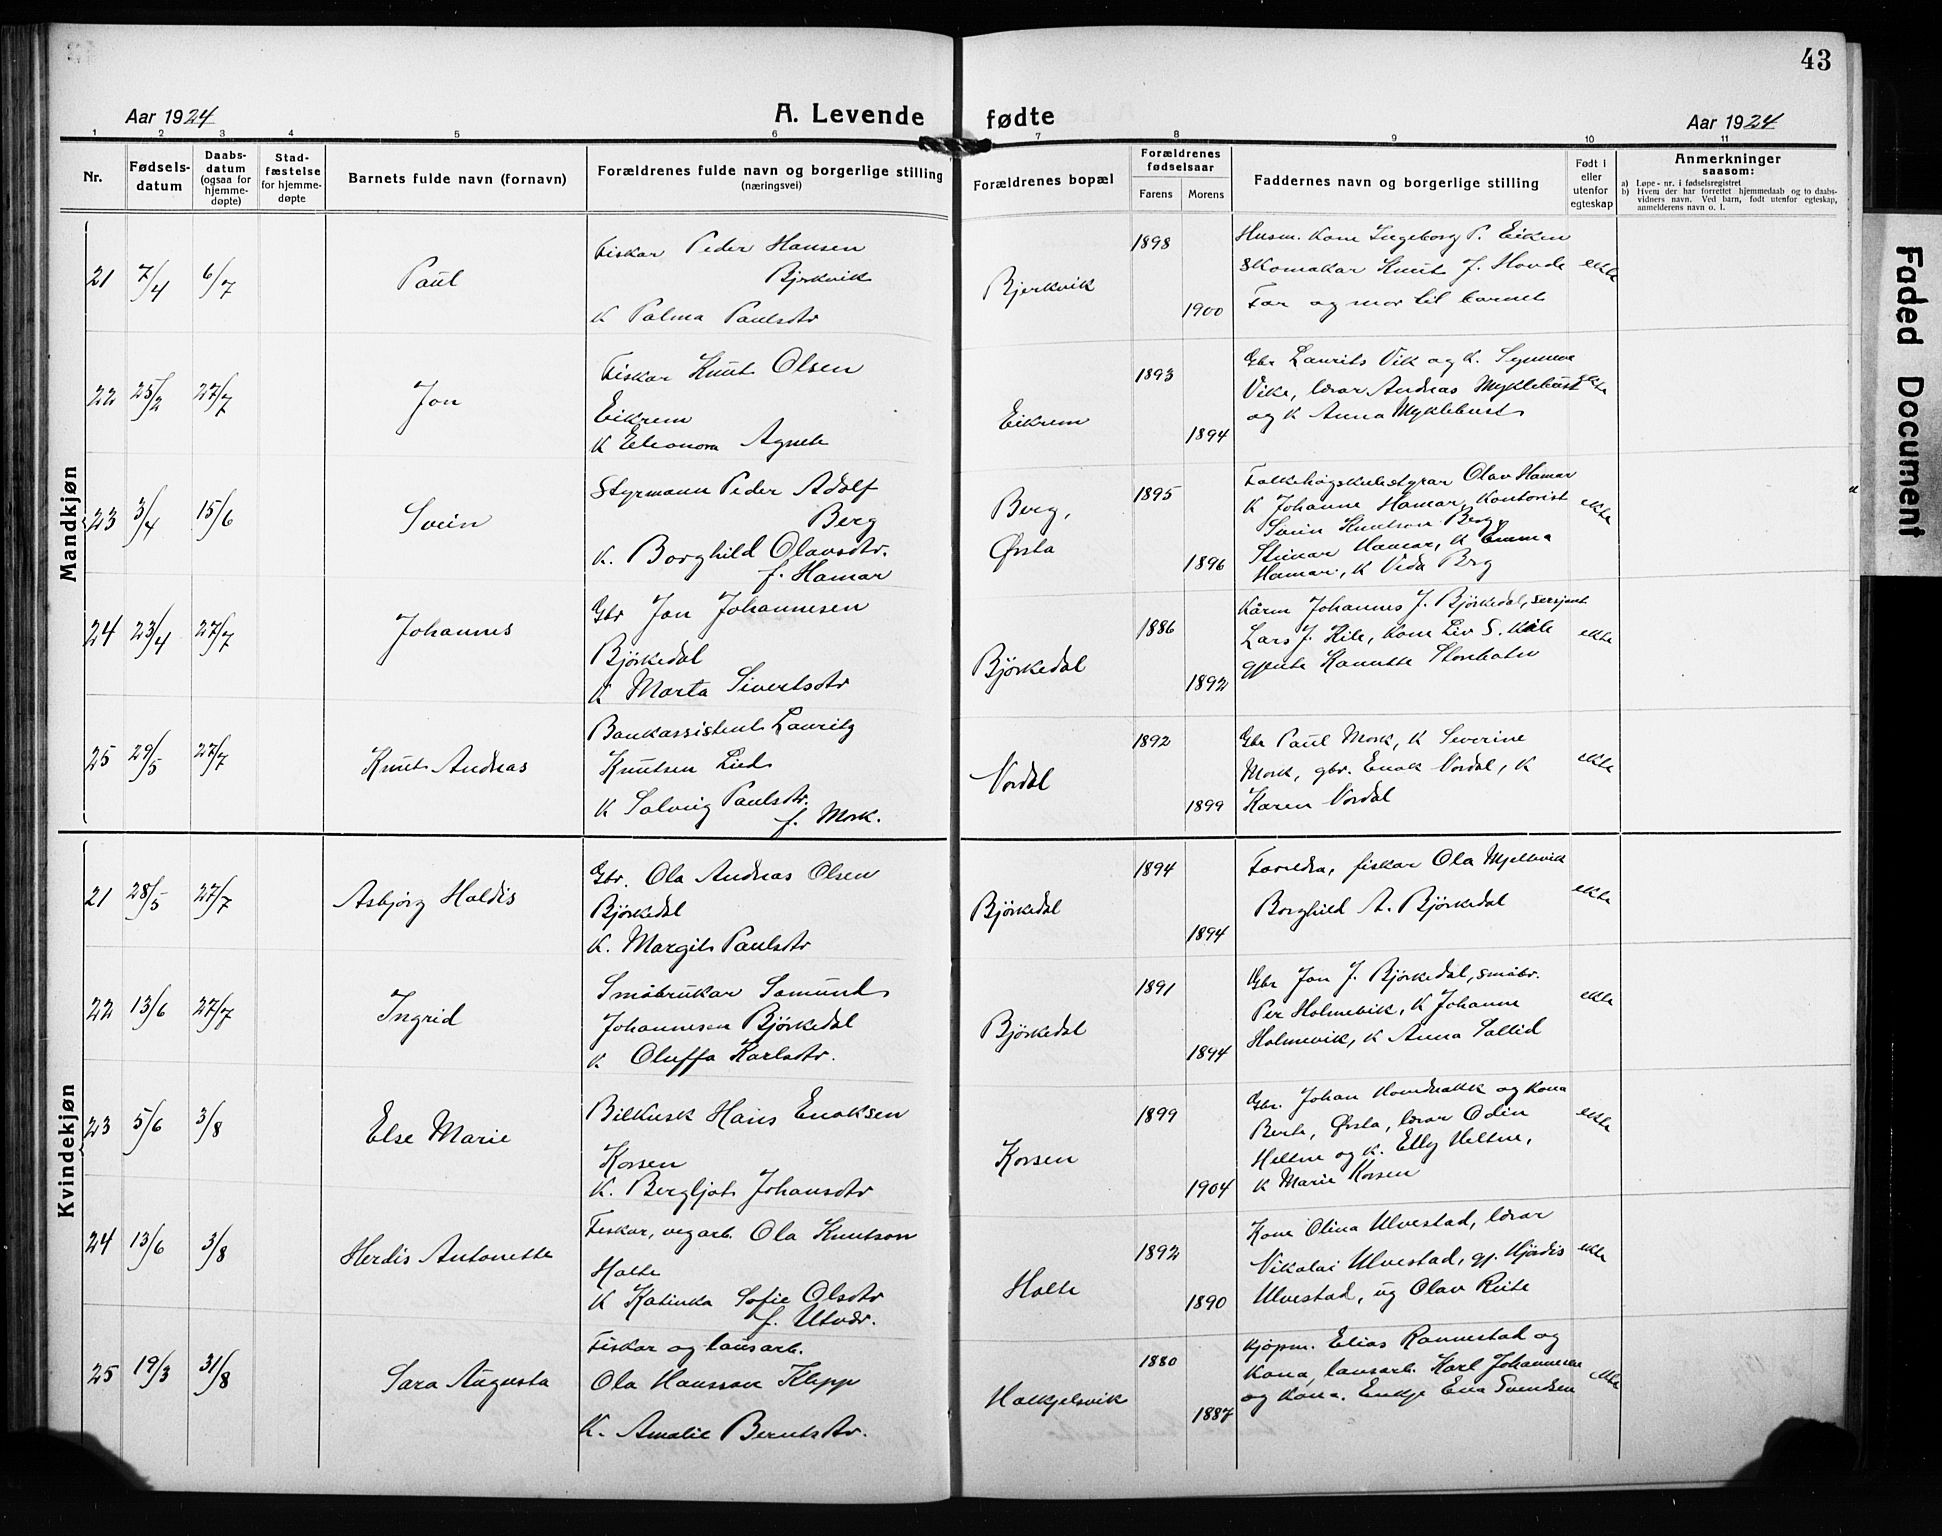 43
Aar 1924
A. Levende fødte
Aar 1924
1 2 3 4 5 6 7 8 9 10 11
Nr.
Fødsels-
datum
Daabs-
datum
(ogsaa for
hjemme-
døpte)
Stad-
fæstelse
for hjemme-
døpte
Barnets fulde navn (fornavn)
Forældrenes fulde navn og borgerlige stilling
(næringsvei)
Forældrenes bopæl
Forældrenes
fødselsaar
Farens Morens
Faddernes navn og borgerlige stilling
Født i
eller
utenfor
egteskap
Anmerkninger
saasom:
a) Løpe-nr. i fødselsregistret
b) Hvem der har forrettet hjemmedaab og to daabs-
vidners navn. Ved barn, født utenfor egteskap,
anmelderens navn o. l.
Mandkjøn
21 7/4 6/7 Paul
Fiskar Peder Hansen
Bjørkvik
K Palma Paulsdtr
Bjerkvik
1898
1900
Husm. Kone Ingeborg P. Eiken
Skomakar Knut J. Hovde
Far og mor til barnet
ekte
22 25/2 27/7 Jon
Fiskar Knut Olsen
Eikrem
K Eleonora Agnete
Eikrem
1893
1894
Gbr Laurits Vik og K. Synneve
Vike, lærar Andreas Myklebust
og K Anna Myklebust
ekte
23 3/4 15/6 Svein
Styrmann Peder Adolf
Berg
K. Borghild Olavsdtr.
f. Hamar
Berg,
Ørsta
1895
1896
Folkehøgskulestyrar Olav Hamar
K Johanne Hamar, Kontorist
Svein Knutson Berg,
Steinar Hamar, K Emma
Hamar, K Vida Berg
ekte
24 23/4 27/7 Johannes
Gbr Jon Johannesen
Bjørkedal
K Marta Sivertsdtr
Bjørkedal
1886
1892
Kårm Johannes J. Bjørkedal, sersjent
Lars J. Kile, Kone Liv S. Kile
gjente Hanutte
ekte
25 29/5 27/7 Knut Andreas
Bankassistent Lauritz
Knutsen Lied
K Solveig Paulsdtr.
f. Mork.
Nordal
1892
1899
Gbr Paul Mork, K Severine
Mork, gbr. Enok Nordal, K
Karen Nordal
ekte
Kvindekjøn
21 28/5 27/7 Asbjørg Haldis
Gbr. Ola Andreas Olsen
Bjørkedal
K. Margit Paulsdtr
Bjørkedal
1894
1894
Foreldra, fiskar Ola Mjelkvik
Borghild A. Bjørkedal
ekte
22 13/6 27/7 Ingrid
Småbrukar Samund
Johannesen Bjørkedal
K Oluffa Karlsdtr.
Bjørkedal
1891
1894
Gbr Jon J. Bjørkedal, småbr.
Per Holmevik, K Johanne
Holmevik, K Anna Saltid
ekte
23 5/6 3/8 Else Marie
Bilkusk Hans Enoksen
Korsen
K. Bergljot Johansdtr
Korsen
1899
1904
Gbr. Johan Hovdnakk og Kona
Berte, Ørsta, lærar Odin
Heltne og K. Elly Heltne,
K Marie Korsen
ekte
24 13/6 3/8 Herdis Antonette
Fiskar, vegarb. Ola Knutson
Holte
K Katinka Sofie Olsdtr
f. Utvær.
Holte
1892
1890
Kone Olina Ulvestad, lærar
Nikolai Ulvestad, gj. Hjørdis
Ulvestad, ug Olav Reite
ekte
25 19/3 31/8 Sara Augusta
Fiskar og lausarb.
Ola Hansson Klepp
K. Amalie Berntsdtr.
Halkjelsvik
1880
1887
Kjøpm. Elias Rannestad og
Kona, lausarb. Karl Johannesen
og Kona. Enkje Ena Svendsen
ekte
Faded Document